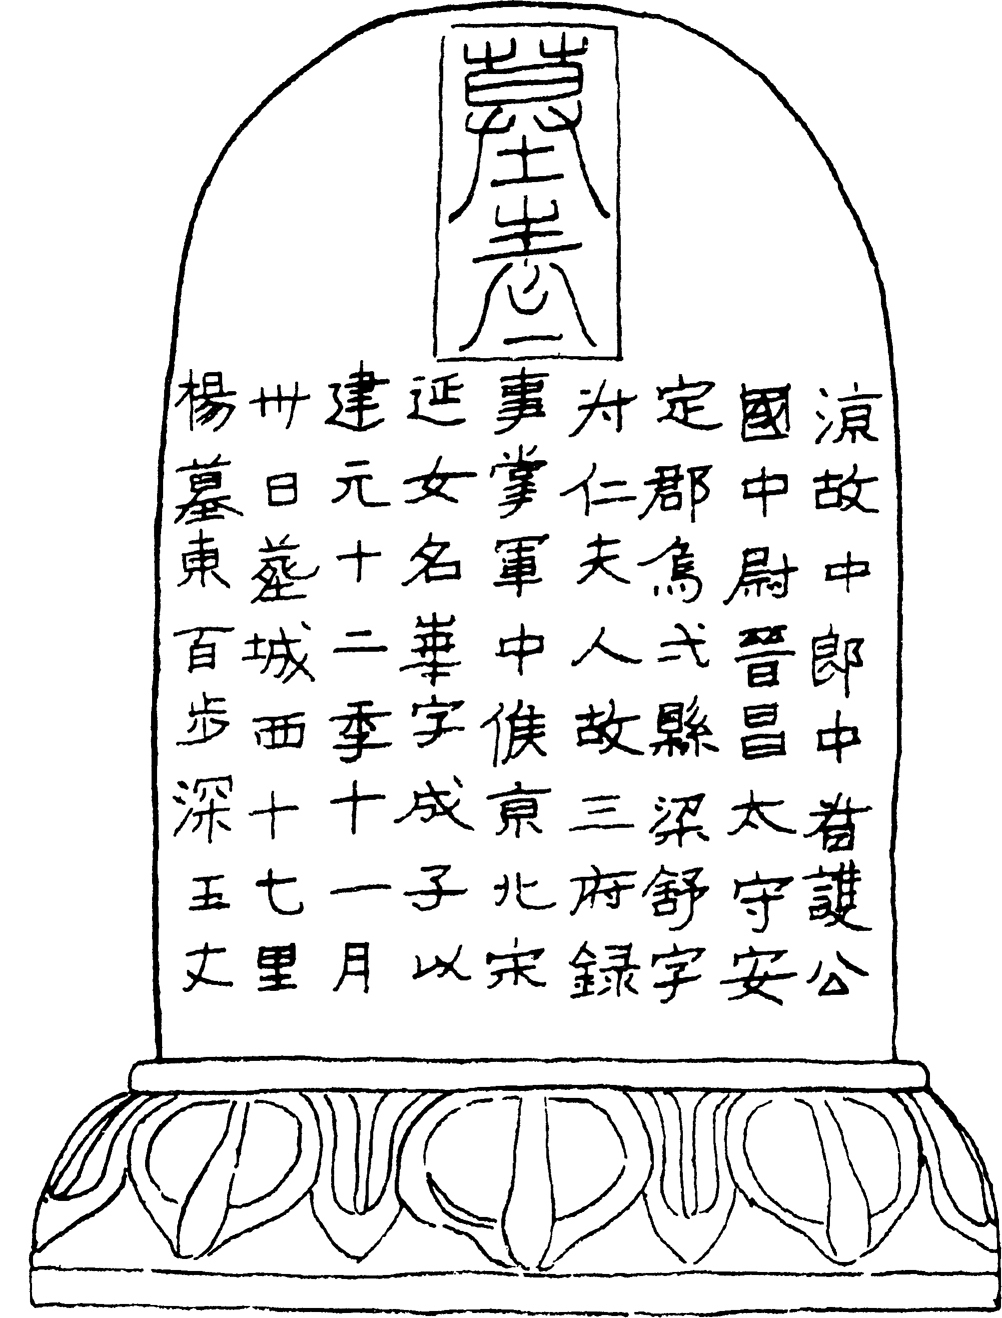 墓表
涼故中郎中督護公
國中尉晉昌太守安
定郡烏氏縣梁舒字
叔仁夫人故三府録
事掌軍中候京兆宋
延女名華字成子以
建元十二季十一月
卅日葬城西十七里
楊墓東百步深五丈